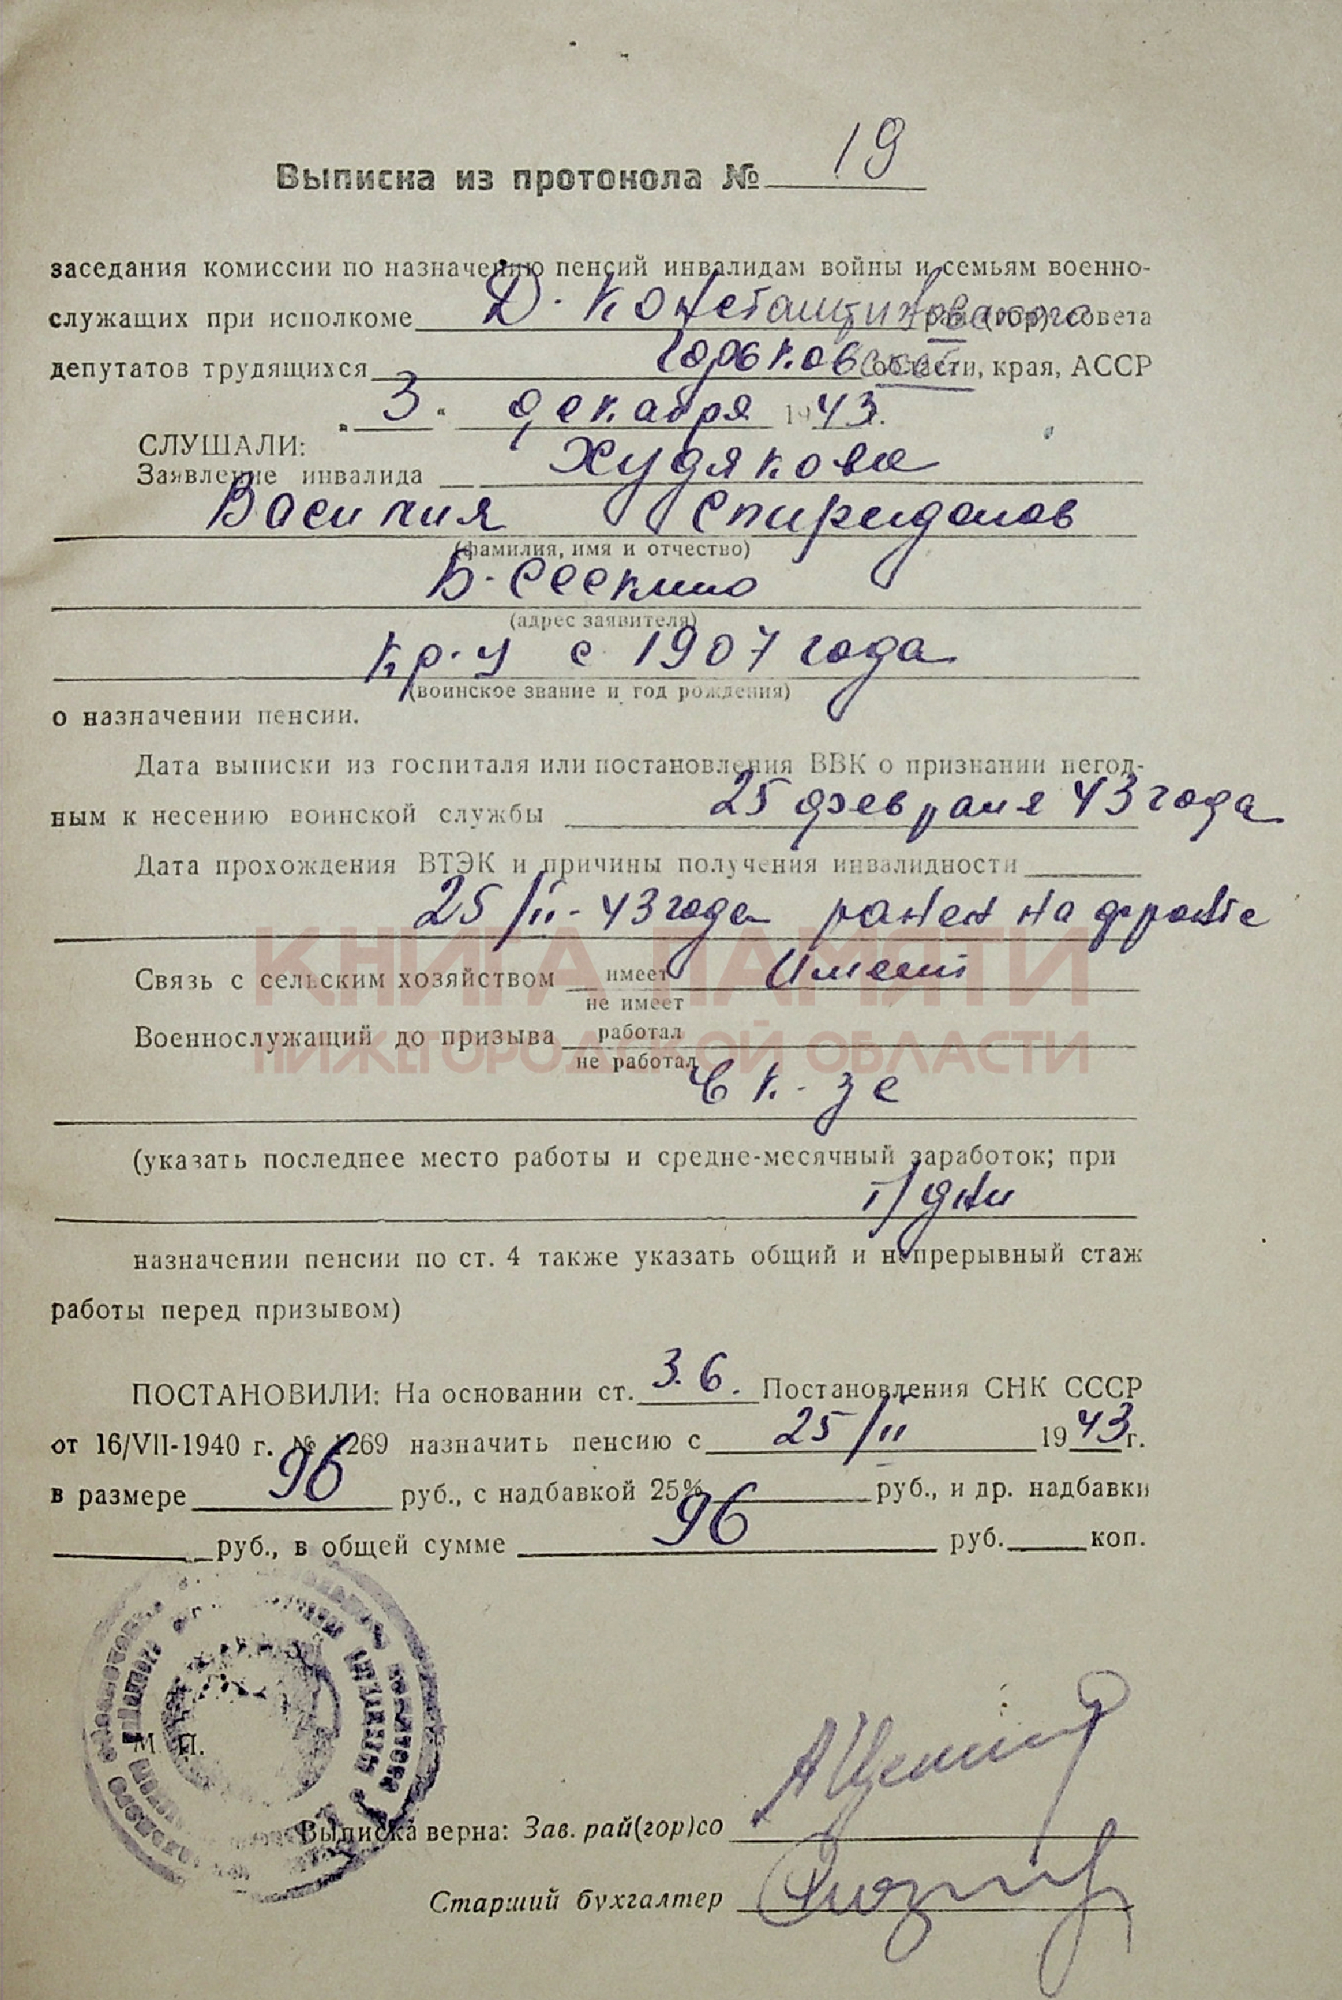 Выписка из протокола № 19
заседания комиссии по назначению пенсий инвалидам войны и семьям военно-
служащих при исполкоме Д. Константиновского рай. (гор.) совета
депутатов трудящихся Горьковской области, края, АССР
„ 3 " декабря 1943 г.
СЛУШАЛИ:
Заявление инвалида Худякова
Василия Спиридонов
(фамилия, имя и отчество)
Б-Сескино
(адрес заявителя)
кр-ц с 1907 года
(воинское звание и год рождения)
о назначении пенсии.
Дата выписки из госпиталя или постановления ВВК о признании негод-
ным к несению воинской службы 25 февраля 43 года
Дата прохождения ВТЭК и причины получения инвалидности
25/II-43 года ранен на фронте
Связь с сельским хозяйством имеет Имеет
не имеет
Военнослужащий до призыва работал
не работал
в к-зе
(указать последнее место работы и средне-месячный заработок; при
т/дни
назначении пенсии по ст. 4 также указать общий и непрерывный стаж
работы перед призывом)
ПОСТАНОВИЛИ: На основании ст. 3.6. Постановления СНК СССР
от 16/VII-1940 г. № 1269 назначить пенсию с 25/II 1943 г.
в размере 96 руб., с надбавкой 25% руб., и др. надбавки
руб., в общей сумме 96 руб. коп.
М. П.
Выписка верна: Зав. рай(гор)со
Старший бухгалтер
КНИГА ПАМЯТИ
НИЖЕГОРОДСКОЙ ОБЛАСТИ